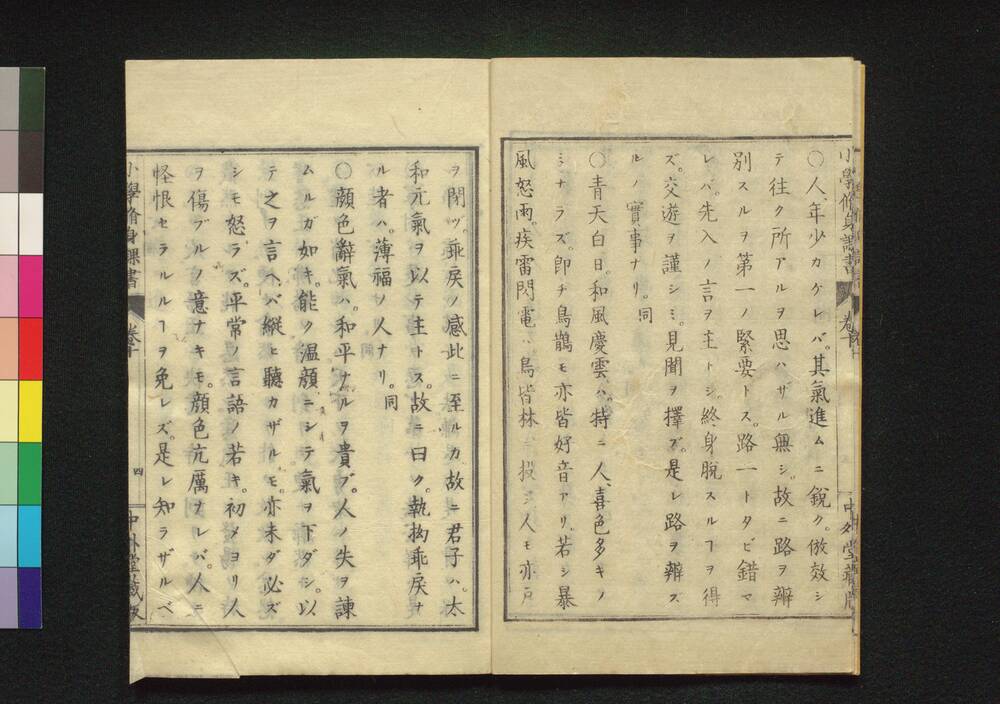 小學脩身課書 卷十 中外堂藏版
〇人年少カケレバ。其氣進ムニ銳ク。倣效シ
テ往ク所アルヲ思ハザル無シ。故ニ路ヲ辨
別スルヲ第一ノ緊要トス。路一トタビ錯マ
レバ。先入ノ言ヲ主トシ。終身脫スルヿヲ得
ズ。交遊ヲ謹シミ。見聞ヲ擇ブ。是レ路ヲ辨ス
ルノ實事ナリ。同
〇青天白日。和風慶雲ハ。特ニ人ノ喜色多キノ
ミナラズ。卽チ鳥鵲モ亦皆好音アリ。若シ暴
風怒雨。疾雷閃電ハ。鳥皆林ニ投ジ人モ亦戶
ヲ閉ヅ。乖戾ノ感此ニ至ルカ故ニ君子ハ。太
和元氣ヲ以テ主トス。故ニ曰ク。執拗乖戾ナ
ル者ハ。薄福ノ人ナリ。同
〇顏色辭氣ハ。和平ナルヲ貴ブ。人ノ失ヲ諫
ムルガ如キ。能ク溫顏ニシテ氣ヲ下ダシ。以
テ之ヲ言ヘバ縱ヒ聽カザルモ。亦未ダ必ズ
シモ怒ラズ。平常ノ言語ノ若キ。初メヨリ人
ヲ傷ブルノ意ナキモ。顏色亢厲ナレバ。人ニ
怪恨セラルルヿヲ免レズ。是レ知ラザルベ
小學脩身課書 卷十 四 中外堂藏版